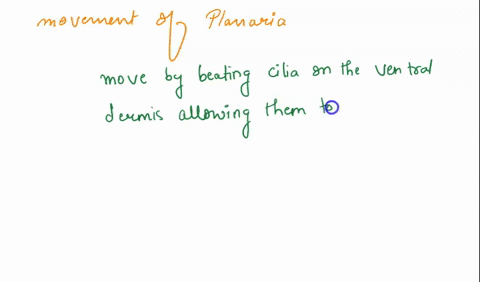 movement of Planaria
move by beating cilia on the ventral
dermis allowing them to